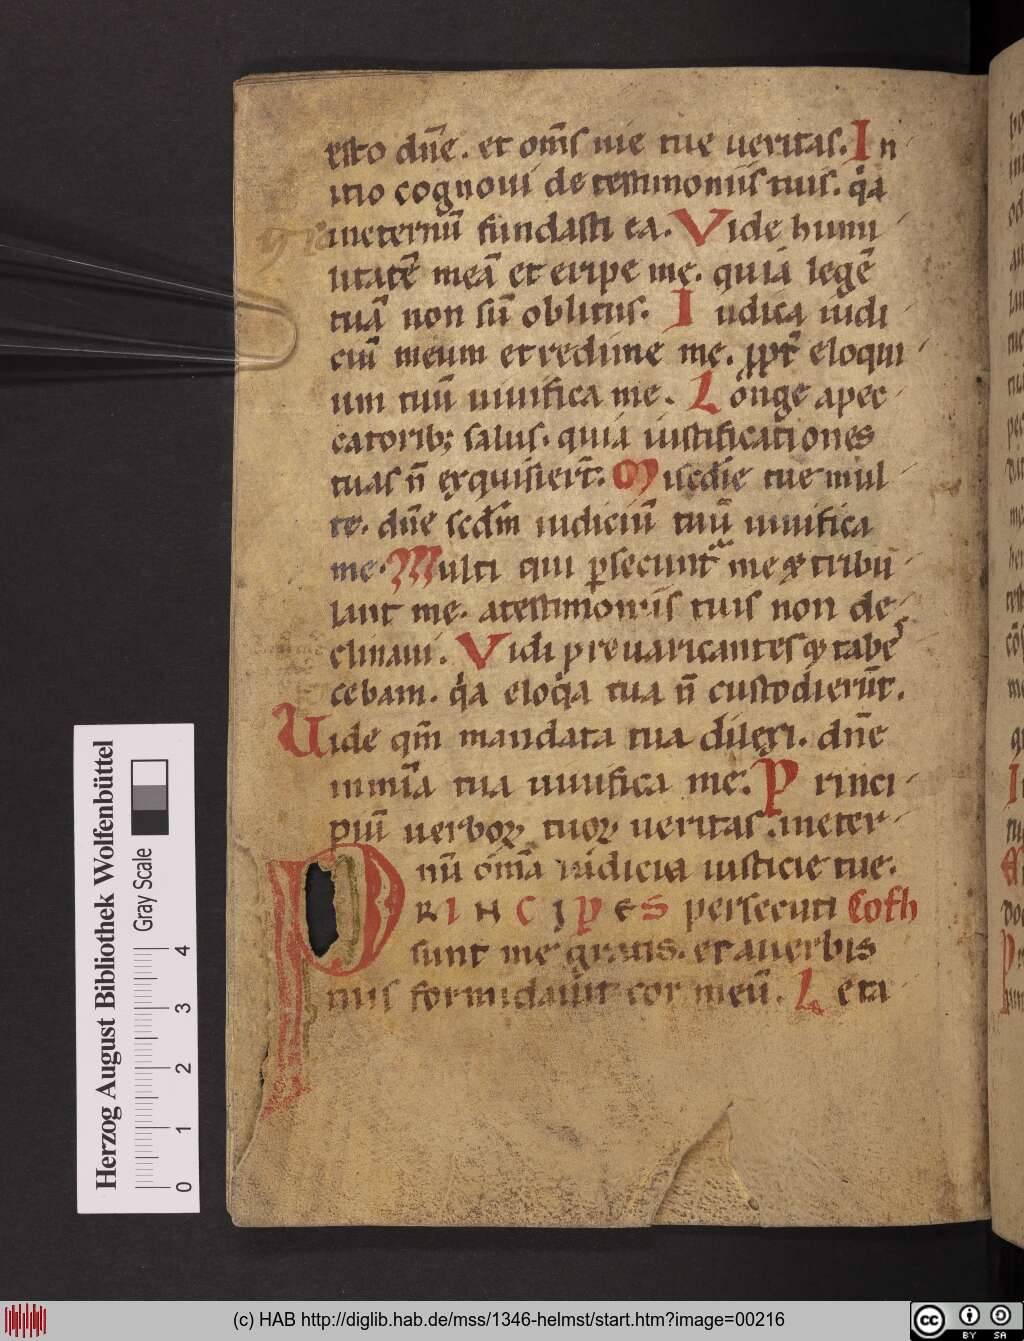 esto dn̄e. et om̄s uie tue ueritas. In
itio cognoui de testimoniis tuis. qͥa
ineternū fundasti ea. Vide humi
litatē meā et eripe me. quia legē
tuā non sū oblitus. Iudica iudi
ciū meum et redime me. ꝓpt̄ eloqui
um tuū uiuifica me. Longe apec
catorib; salus. quia iustificationes
tuas n̄ exquisiert̄. Mis̄cdie tue mul
te. dn̄e scd̄m iudiciū tuū uiuifica
me. Multi qui ꝑsecunt me & tribu
lant me. atestimoniis tuis non de
clinaui. Vidi preuaricantes & tabes
cebam. qͥa eloqͥa tua n̄ custodiert̄.
Uide qm̄ mandata tua dilexi. dn̄e
inmīa tua uiuifica me. Princi
piū uerboꝝ tuoꝝ ueritas. ineter
nū om̄a iudicia iusticie tue.
PRINCIPES persecuti Cofh
sunt me gratis. et auerbis
tuis formidauit cor meū. Leta
Herzog August Bibliothek Wolfenbüttel
Gray Scale
0 1 2 3 4
(c) HAB http://diglib.hab.de/mss/1346-helmst/start.htm?image=00216
cc BY SA